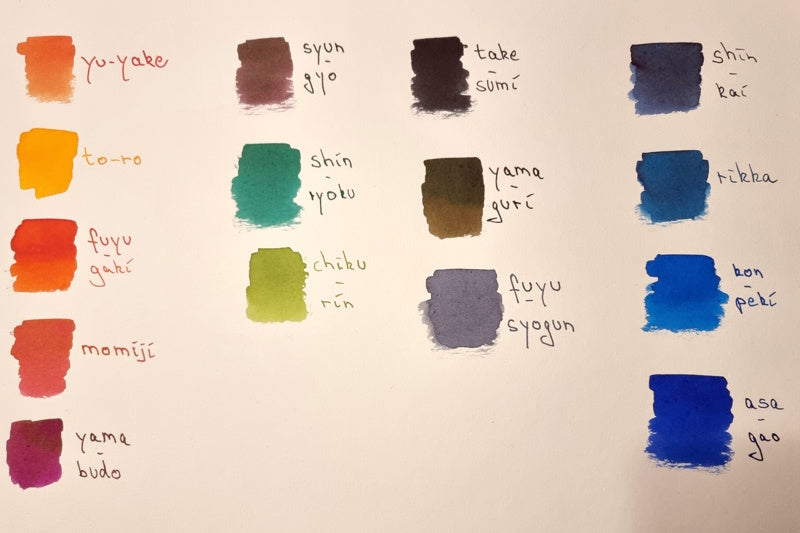 yu-yake
to-ro
fuyu
-
gaki
momiji
yama
-
budo
syun
-
gyo
shin
-
ryoku
chiku
-
rin
take
-
sumi
yama
-
guri
fuyu
-
syogun
shin
-
kai
rikka
kon
-
peki
asa
-
gao